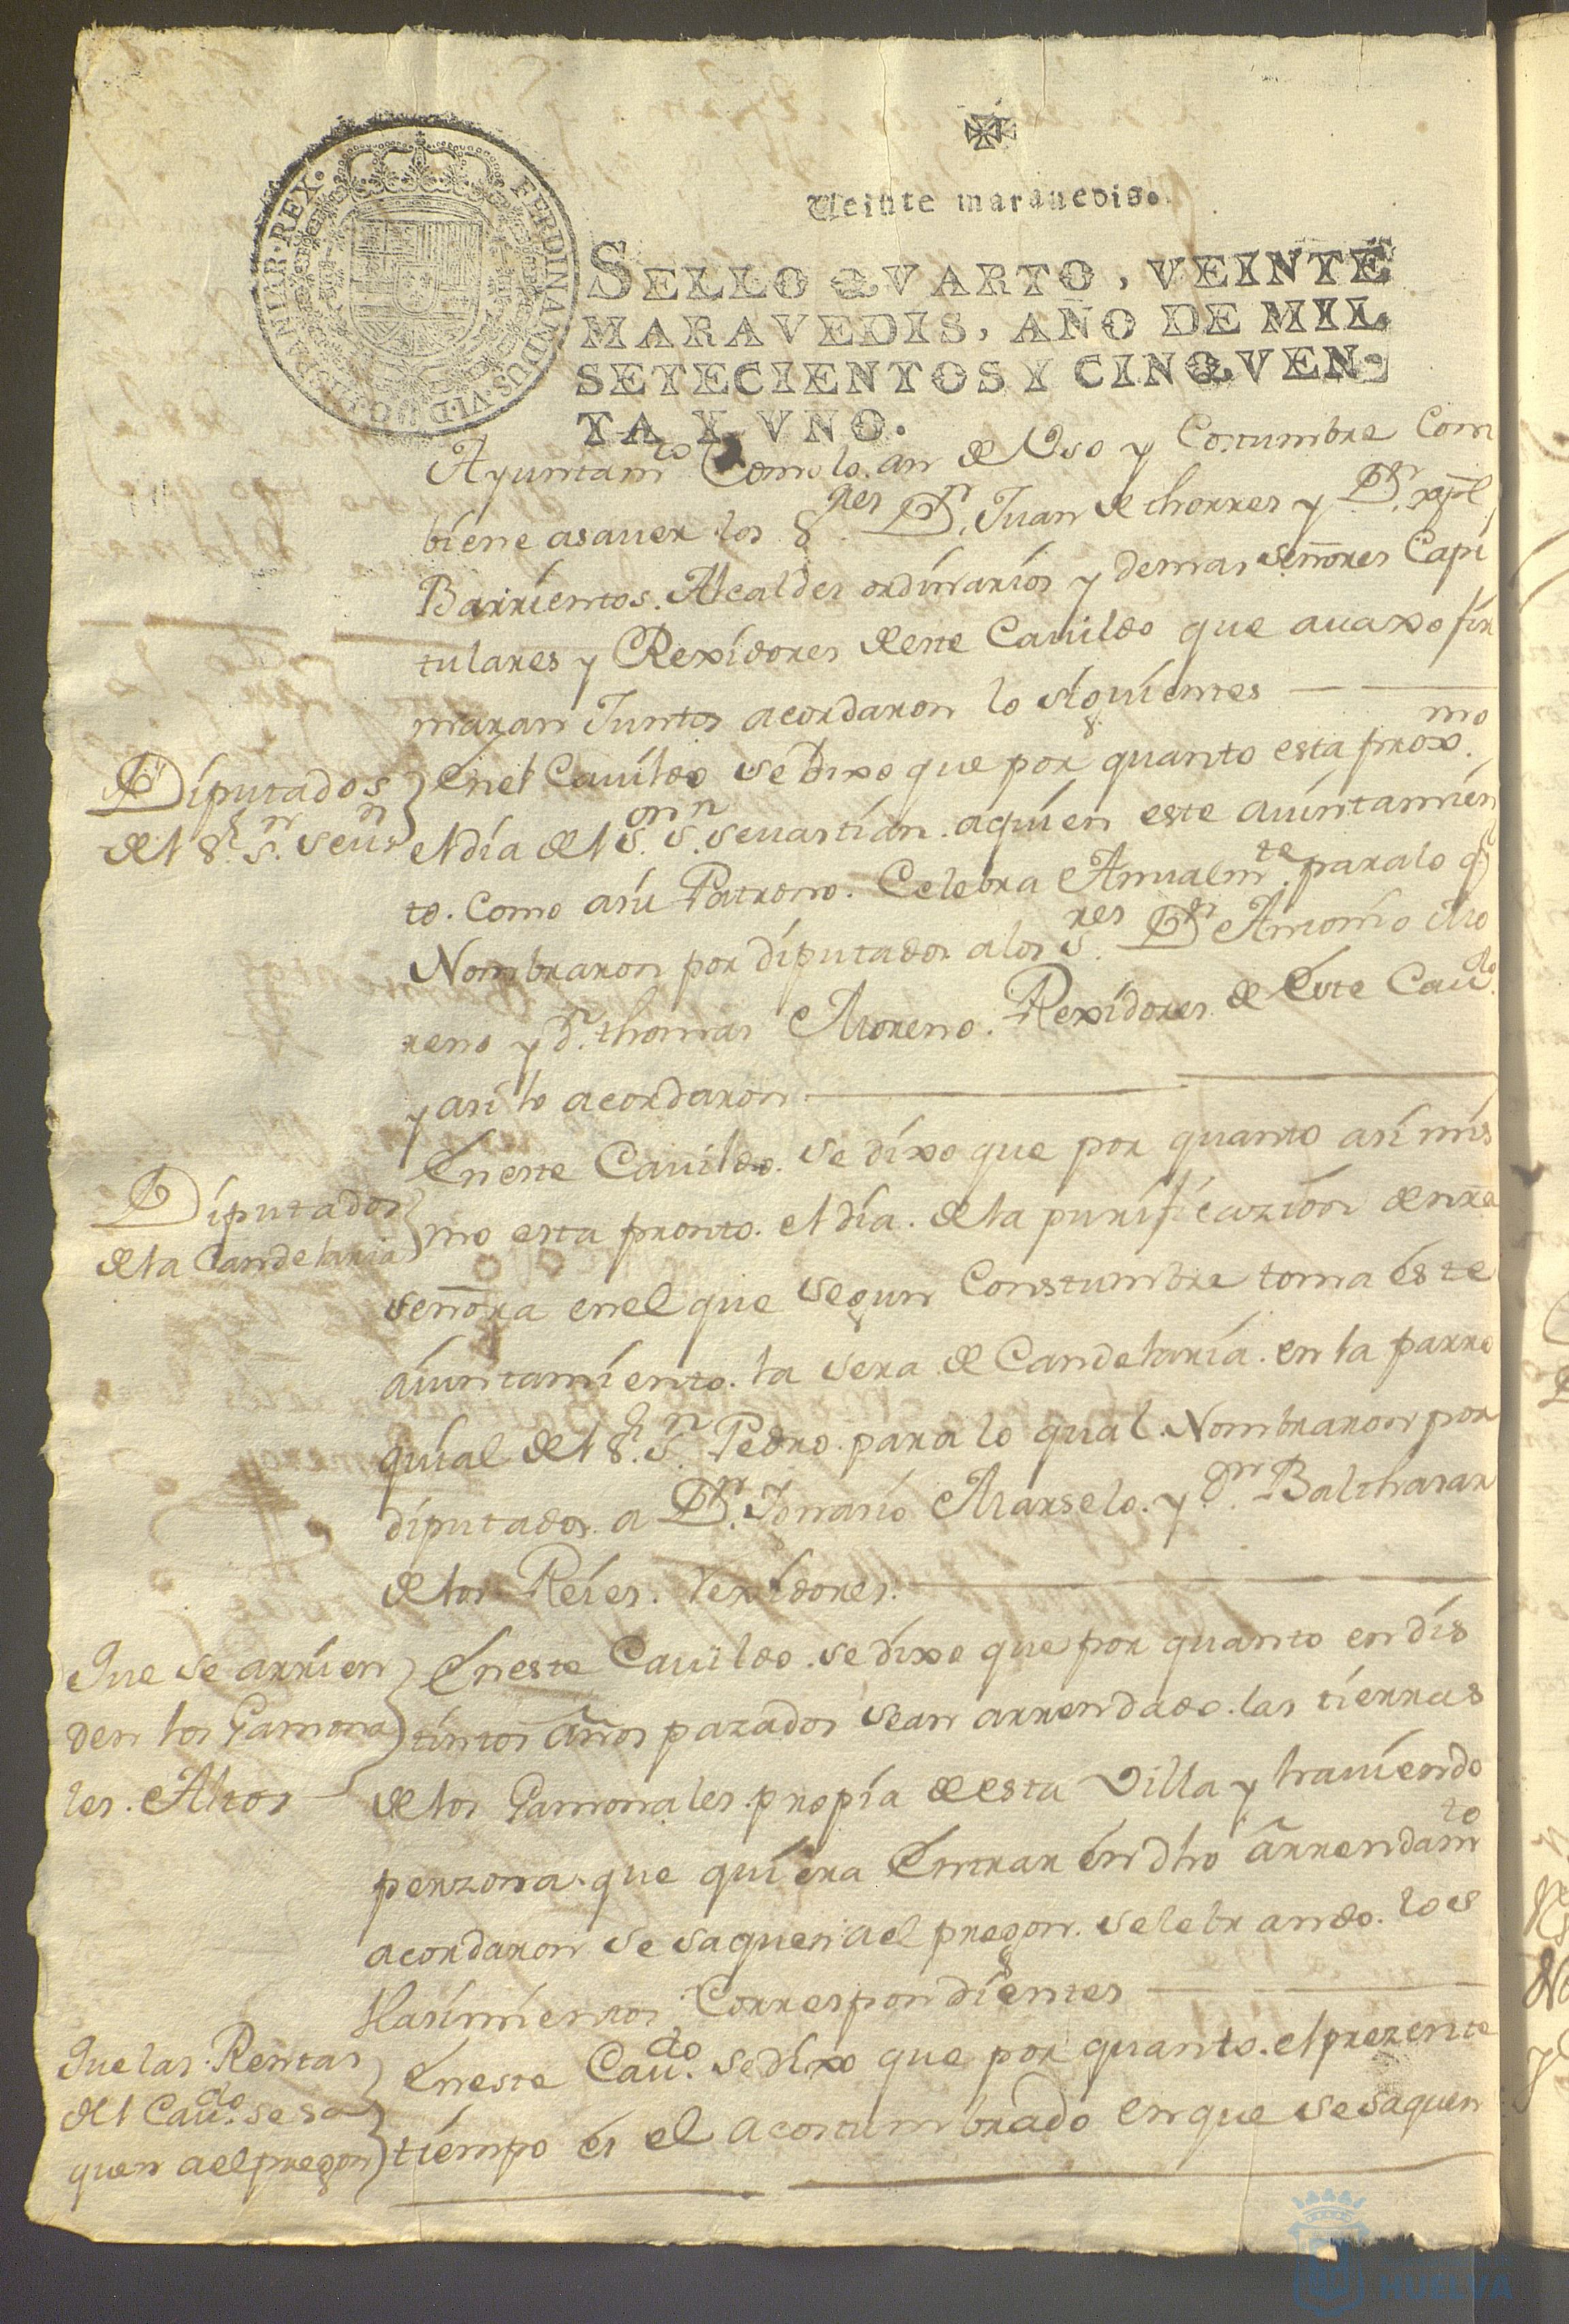 FERDINANDUS·VI·D·G·HISPANIAR·REX·
Veinte marauedis.
SELLO QVARTO, VEINTE
MARAVEDIS, AÑO DE MIL
SETECIENTOS Y CINQVEN-
TA Y VNO.
Ayuntamto Como lo an de Vso y Costumbre Com
biene asauer los Sres Dn Juan de thorres y Dn xptl
Barrientos. Alcaldes ordinarios y demas señores Capi
tulares y Rexidores deste Cauildo que auaxo fir
maran Juntos acordaron lo siguientes
Diputados
del Sr Sn Seun
Enel Cauildo se Dixo que por quanto esta proxmo
el dia del Sor Sn Seuastian. aquien este aiuntamien
to. Como asu Patrono. Celebra Anualmte para lo q
Nombraron por diputados a los Sres Dn Antonio Mo
reno y Dn thomas Moreno. Rexidores de Este Caudo
y asi lo acordaron
Diputados
de la Candelaria
Eneste Cauildo. se dixo que por quanto asi mis
mo esta pronto. el dia. de la purificazion de nra
señora enel que segun Constumbre toma este
aiuntamiento. la sera de Candelaria. en la parro
quial del Sr Sn Pedro. para lo qual. Nombraron por
diputados a Dn Ignasio Marselo. y Dn Balthasar
de los Reies. rexidores.
Que se arrien
den los Gamona
les. Altos
Eneste Cauildo. se dixo que por quanto en dis
tintos años pazados sean arrendado. las tierras
de los Gamonales. propia de esta Villa y hauiendo
perzona. que quiera Entrar en dho arrendamto
acordaron se saquen ael pregon. selebrando. los
Hasimientos Correspondientes
Que las Rentas
del Caudo. se sa
quen ael pregon
Eneste Caudo. se dixo que por quanto. el prezente
tiempo es el acostumbrado en que se saquen
HUELVA